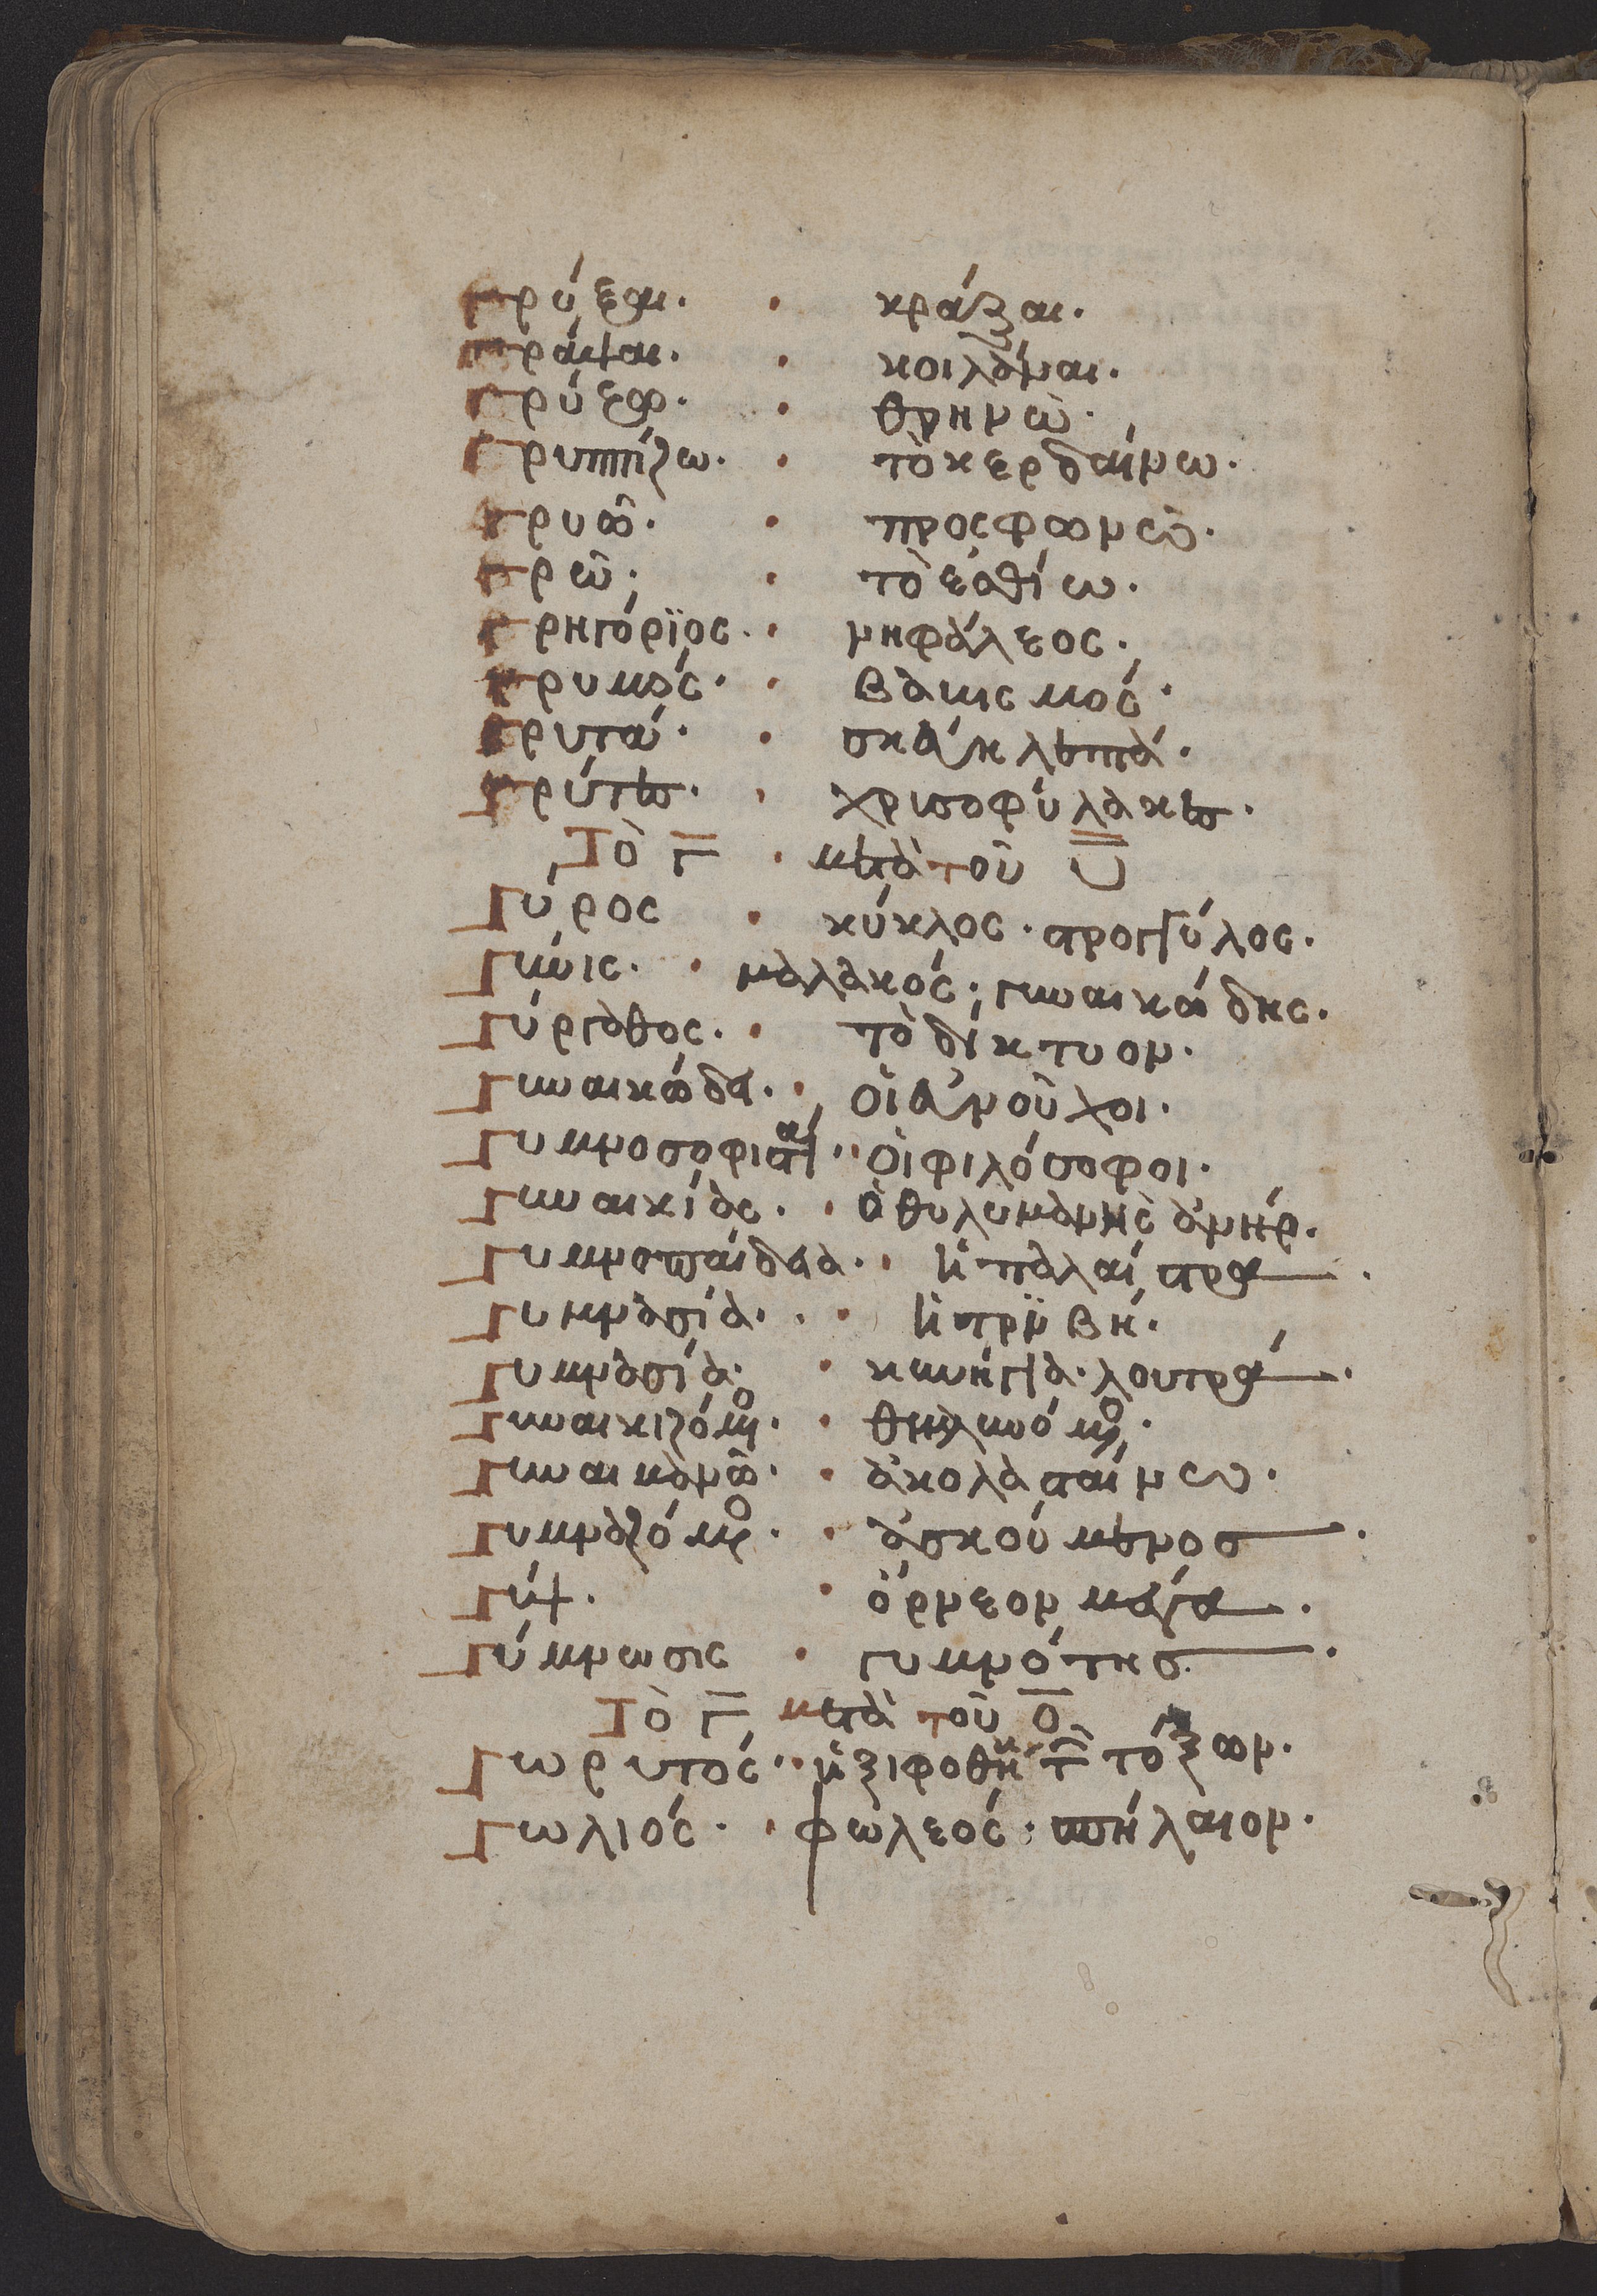 Γρύξαι · κράξαι ·
Γράψαι · κοιλάναι ·
Γρύζω · θρηνῶ ·
Γρυππίζω · τὸ κερδαίνω ·
Γρυῶ · προσφωνῶ ·
Γρῶ · τὸ ἐσθίω ·
Γρηγόρϊος · νηφάλεος ·
Γρυμός · βαυισμός ·
Γρυτά · σκεύη λεπτά ·
Γρύτη ·
Τὸ Γ · μετὰ τοῦ Υ
Γῦρος · κύκλος · στρογγύλος ·
Γύνις · μαλακός · γυναικώδης ·
Γύργαθος · τὸ δίκτυον ·
Γυναικώδει · οἱ εὐνοῦχοι ·
Γυμνοσοφισταί · οἱ φιλόσοφοι ·
Γυναικίας · ὁ θηλυμανὴς ἀνήρ ·
Γυμνοπαίδεια · ἡ παλαίστρα ·
Γυμνασία · ἡ τρϊβή ·
Γυμνασία · κυνήγια · λουτρά ·
Γυναικιζόμενος · θηλυνόμενος ·
Γυναικομανῶ · ἀκολασταίνω ·
Γυμναζόμενος · ἀσκούμενος ·
Γύψ · ὄρνεον μέγα ·
Γύμνωσις · γυμνότης ·
Τὸ Γ μετὰ τοῦ Ο
Γωρυτός · ἡ ξιφοθήκη τῶν τόξων ·
Γωλιός · φωλεός · σπήλαιον ·